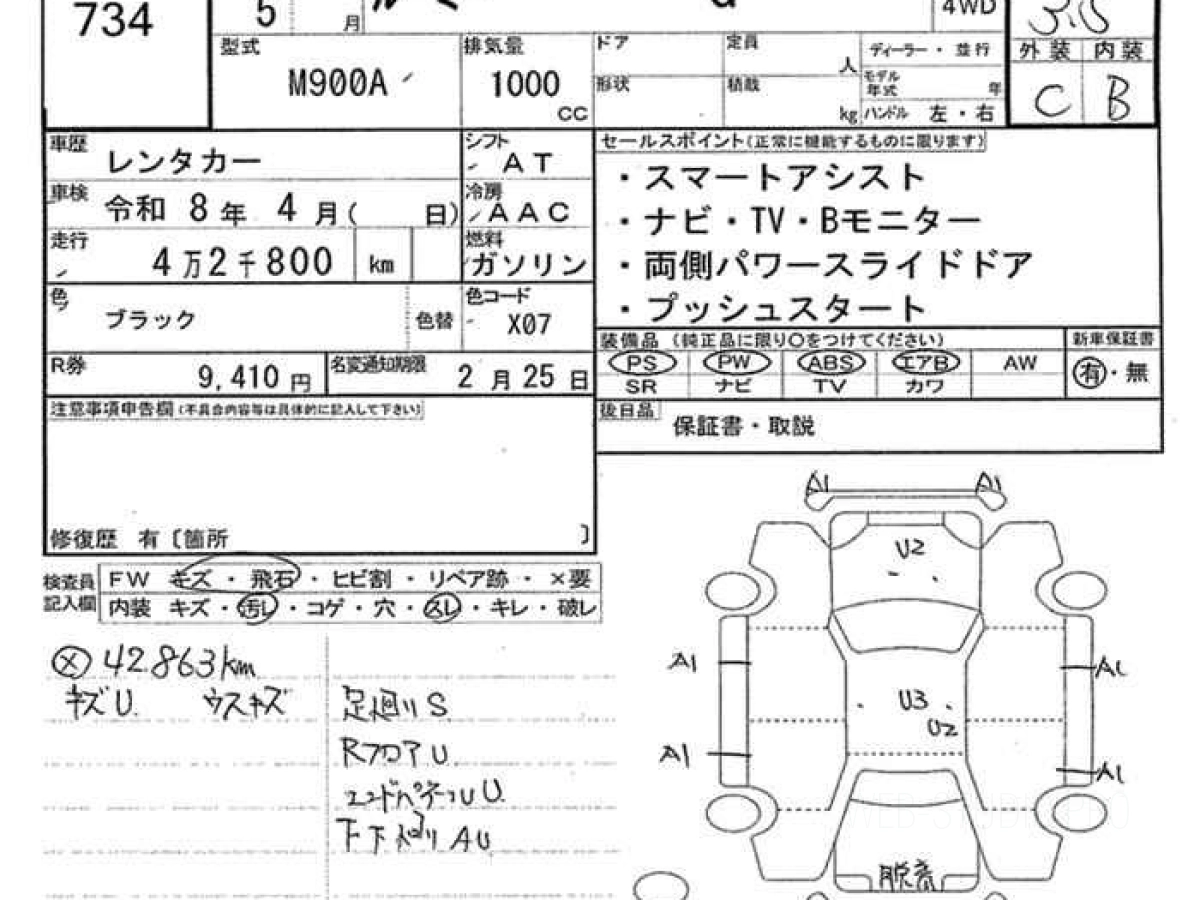 734
5 月
4WD
3.5
型式 M900A
排気量 1000 CC
ドア
形状
定員 人
積載 kg
ディーラー・並行
モデル年式 年
ハンドル 左・右
外装 内装
C B
車歴 レンタカー
シフト AT
車検 令和 8年 4月( 日)
冷房 AAC
走行 4万2千800 km
燃料 ガソリン
色 ブラック
色替
色コード X07
R券 9,410円
名変通知期限 2月25日
セールスポイント(正常に機能するものに限ります)
・スマートアシスト
・ナビ・TV・Bモニター
・両側パワースライドドア
・プッシュスタート
装備品 (純正品に限り○をつけてください)
新車保証書
PS PW ABS エアB AW
有・無
SR ナビ TV カワ
後日品 保証書・取説
注意事項申告欄(不具合内容等は具体的に記入して下さい)
修復歴 有〔箇所 〕
検査員記入欄
FW キズ・飛石・ヒビ割・リペア跡・×要
内装 キズ・汚レ・コゲ・穴・スレ・キレ・破レ
42.863km
キズU. ウスキズ
足廻りS
RフロアU
エンドパネルU.
下下廻り AU
A1 A1
U2
A1 A1
U3
U2
A1 A1